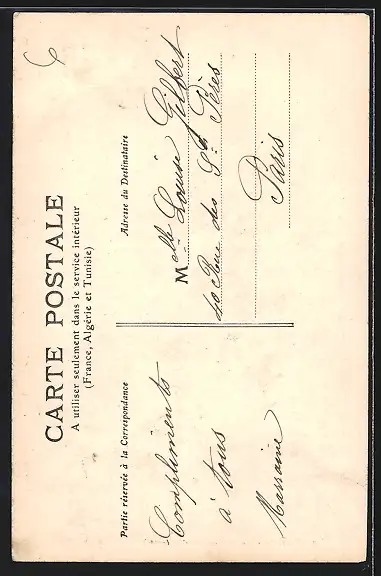 CARTE POSTALE
A utiliser seulement dans le service intérieur
(France, Algérie et Tunisie)
Partie réservée à la Correspondance
Compliments
à tous
Adresse du Destinataire
Melle Louise Gilbert
40 Rue des Sts Pères
Paris